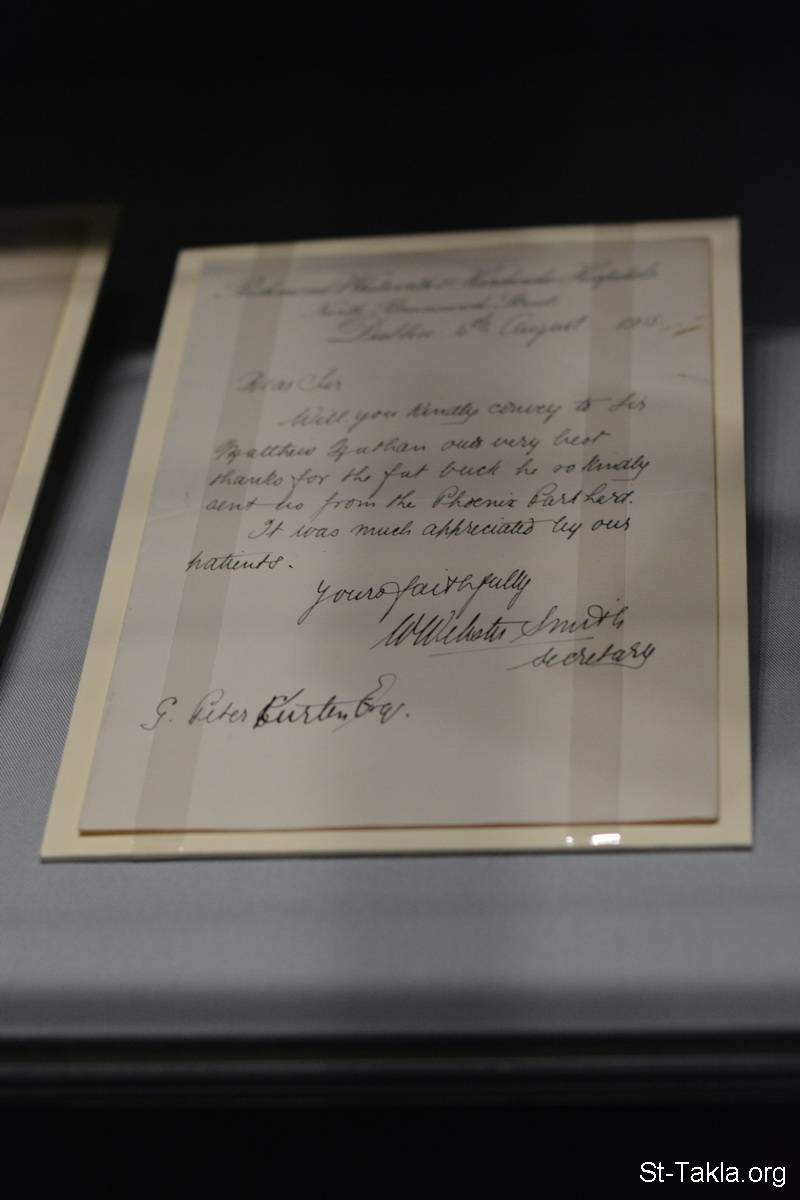 Richmond Whitworth & Hardwicke Hospitals
North Brunswick Street
Dublin 6th August 1915
Dear Sir
Will you kindly convey to Sir
Matthew Nathan our very best
thanks for the fat buck he so kindly
sent us from the Phoenix Park herd.
It was much appreciated by our
patients.
Yours faithfully
W Webster Smith
Secretary
G. Peter Esq.
St-Takla.org